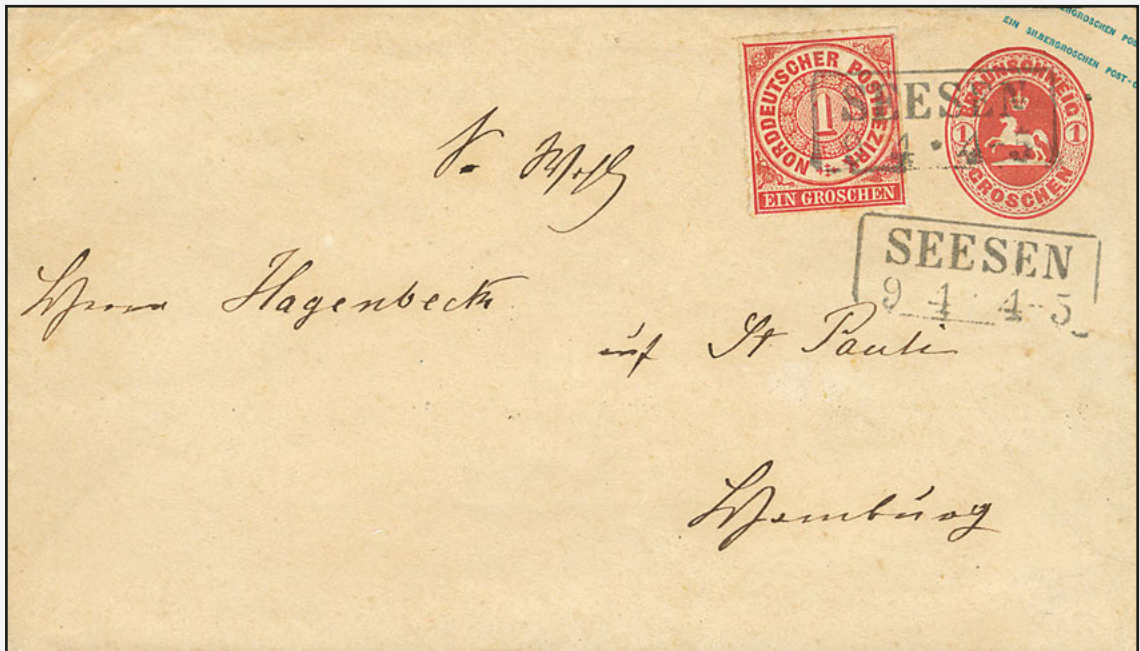 EIN SILBERGROSCHEN POST-
NORDDEUTSCHER POSTBEZIRK
1
EIN GROSCHEN
BRAUNSCHWEIG
1 1
GROSCHEN
SEESEN
SEESEN
9 4 4-5
Hagenbeck
auf St Pauli
Hamburg